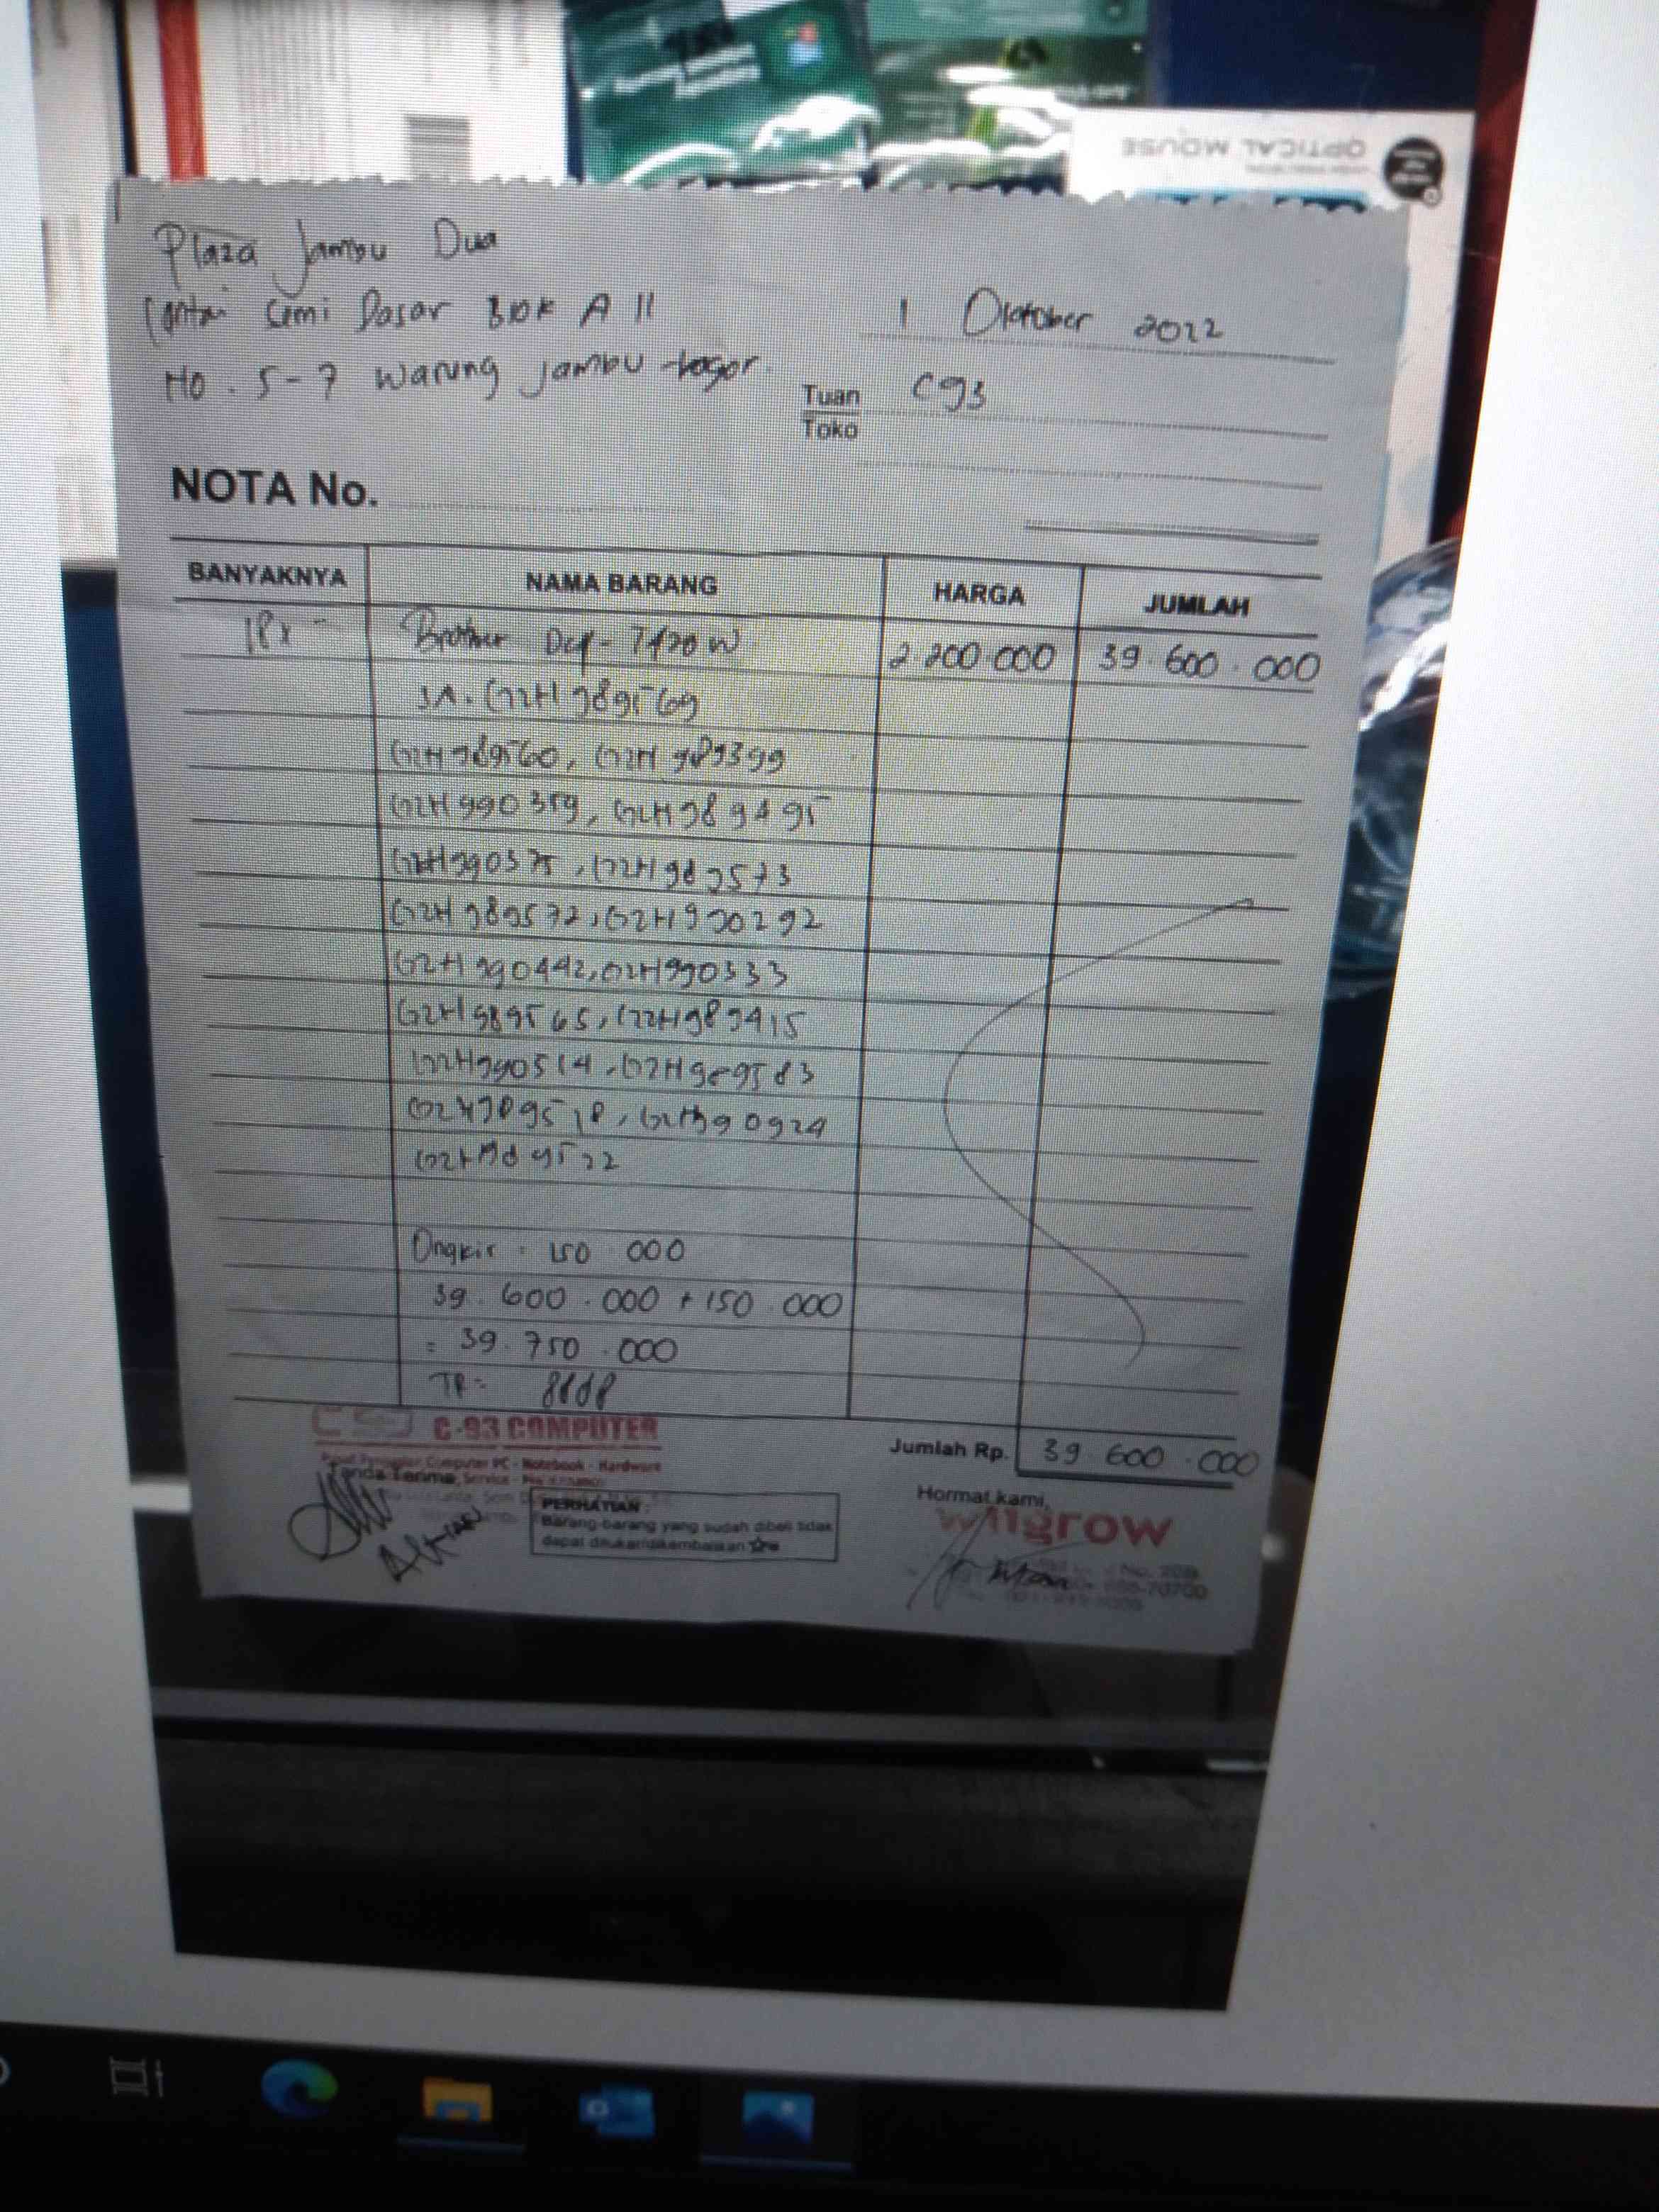 OPTICAL MOUSE
Plaza Jambu Dua
Lantai Semi Dasar Blok A 11
No. 5-7 Warung Jambu-bogor.
1 Oktober 2022
Tuan
Toko
C93
NOTA No.
BANYAKNYA NAMA BARANG HARGA JUMLAH
18x Brother Dcp-7420W 2.200.000 39.600.000
G2H989560, G2H989399
G2H990359, G2H989495
G2H990375, G2H989573
G2H989572, G2H990292
G2H990442, G2H990333
G2H989565, G2H989415
G2H990514, G2H989583
Ongkir = 150.000
39.600.000 + 150.000
= 39.750.000
C93 C-93 COMPUTER
Computer PC - Notebook - Hardware
Tanda Terima, Service
Jumlah Rp. 39.600.000
PERHATIAN :
Barang-barang yang sudah dibeli tidak
dapat ditukar/dikembalikan
Hormat kami,
Wllgrow